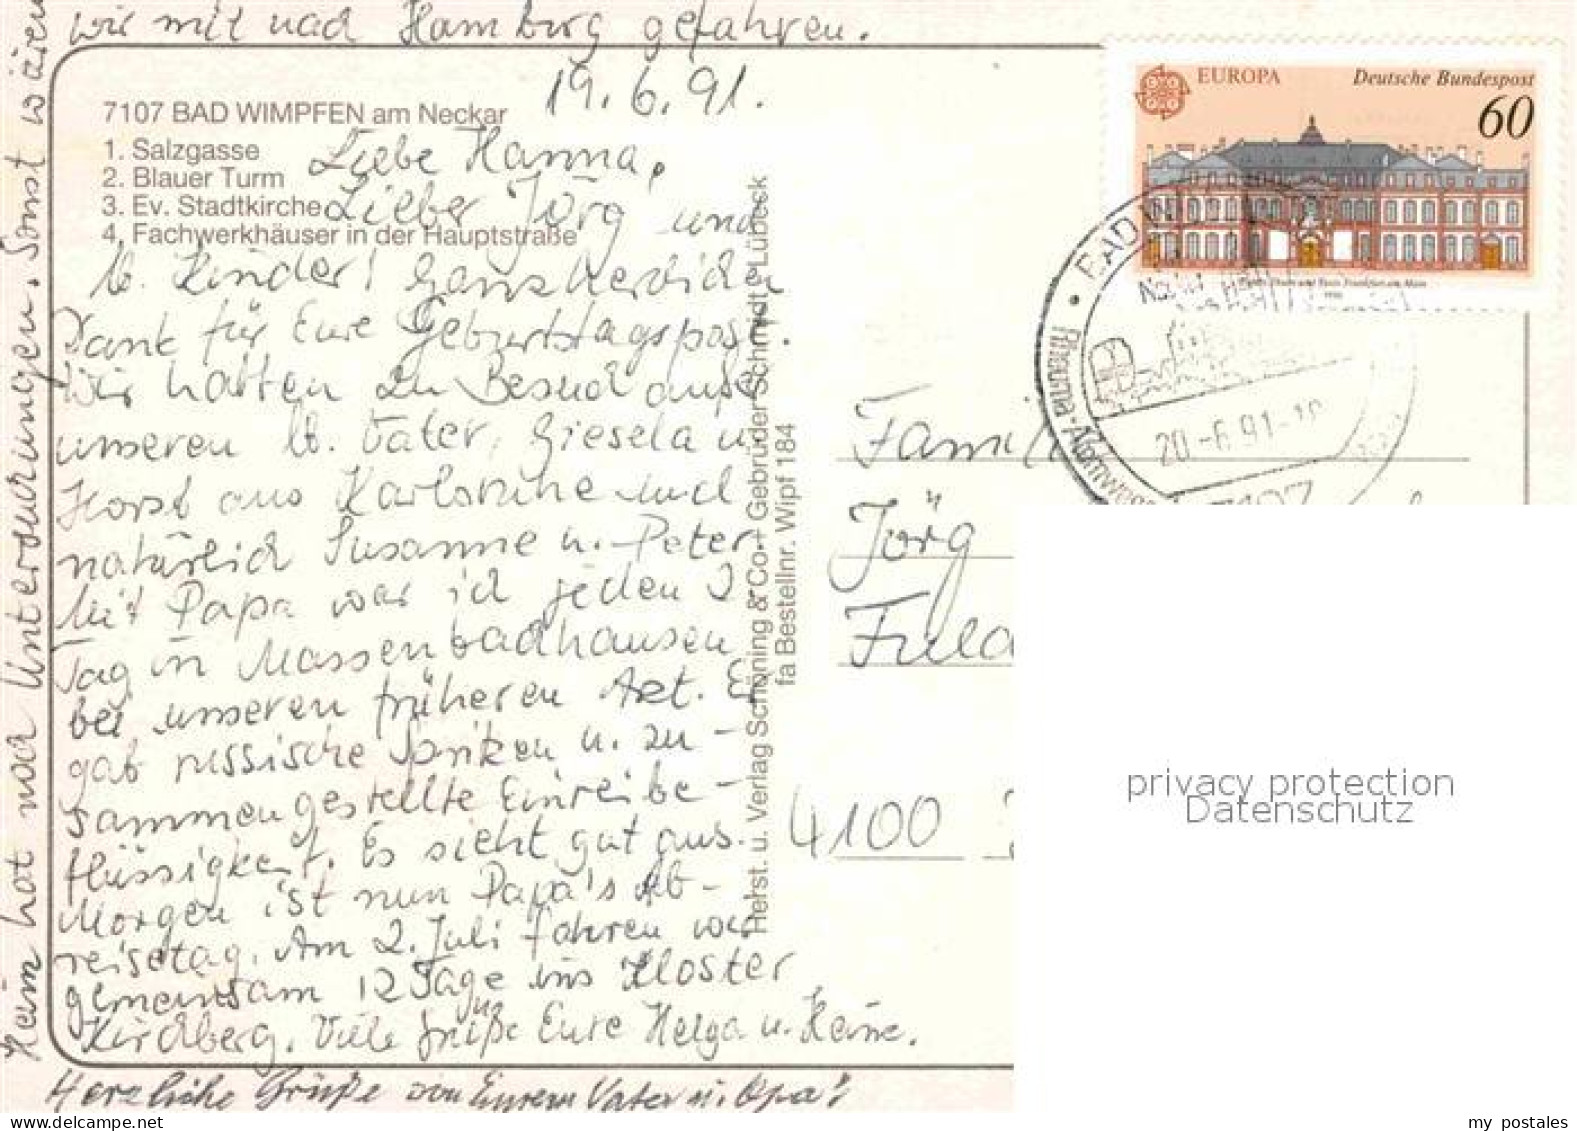 wir mit nach Hamburg gefahren.
19.6.91.
7107 BAD WIMPFEN am Neckar
1. Salzgasse
2. Blauer Turm
3. Ev. Stadtkirche
4. Fachwerkhäuser in der Hauptstraße
Liebe Hanna,
Lieber Jörg und
lb. Kinder! Ganz herzlichen
Dank für Eure Geburtstagspost.
Wir hatten zu Besuch außer
unseren lb. Vater, Giesela u.
Horst aus Karlsruhe und
natürlich Susanne u. Peter.
Mit Papa war ich jeden 2.
Tag in Massenbachhausen
bei unseren früheren Arzt. Er
gab russische Spritzen u. zu-
sammengestellte Einreibe-
flüssigkeit. Es sieht gut aus.
Morgen ist nun Papa's Ab-
reisetag. Am 2. Juli fahren wir
gemeinsam 12 Tage ins Kloster
Kirchberg. Viele Grüße Eure Helga u. Heine.
Herzliche Grüße von Eurem Vater u. Opa!
Heim hat noch Untersuchungen. Sonst wären
Herst. u. Verlag Schöning & Co. + Gebrüder Schmidt · Lübeck
fa Bestellnr. Wipf 184
EUROPA
Deutsche Bundespost
60
BAD W
20.-6.91-18
7107
Famil
Jörg
Fuld
4100
privacy protection
Datenschutz
my postales